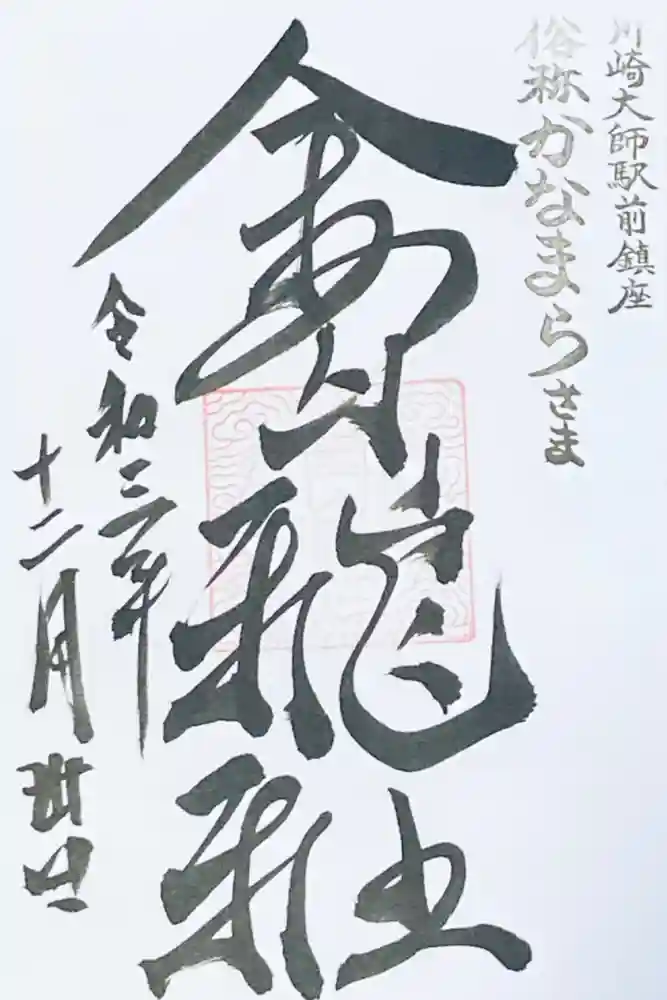 川崎大師駅前鎮座
俗称かなまらさま
金山神社
令和三年
十二月日